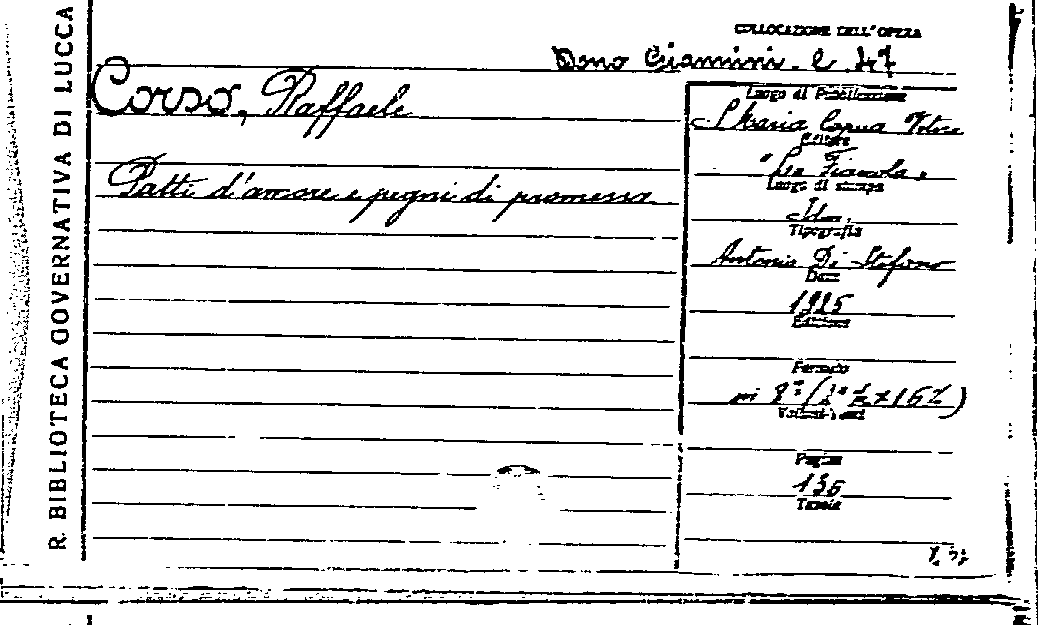 R. BIBLIOTECA GOVERNATIVA DI LUCCA
COLLOCAZIONE DELL'OPERA
Dono Giannini. C. 47
Corso, Raffaele
Patti d'amore e pegni di promessa
Luogo di Pubblicazione
S Maria Capua Vetere
Editore
"La Fiaccola"
Luogo di stampa
Idem.
Tipografia
Antonio Di Stefano
Data
1925
Edizione
Formato
in 8°
Volumi
Pagine
136
Tavole